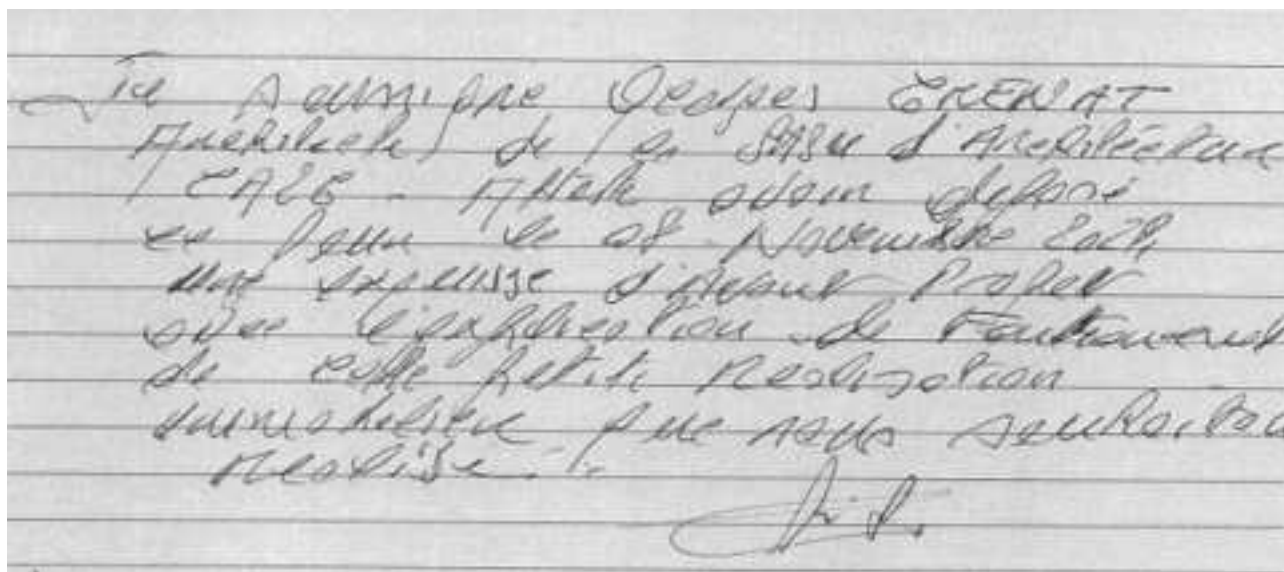 Je soussigné Georges GRENAT
Architecte de la SASU d'Architecture
Atteste avoir déposé
ce jour le 08 Novembre
une esquisse d'Avant Projet
avec l'explication de
de cette petite Réalisation
immobilière que nous
réaliser.